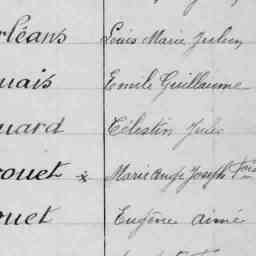 rléans Louis Marie Julien
uais Emile Guillaume
uard Célestin Jules
rouet x Marie Ange Joseph
ouet Eugène aimé